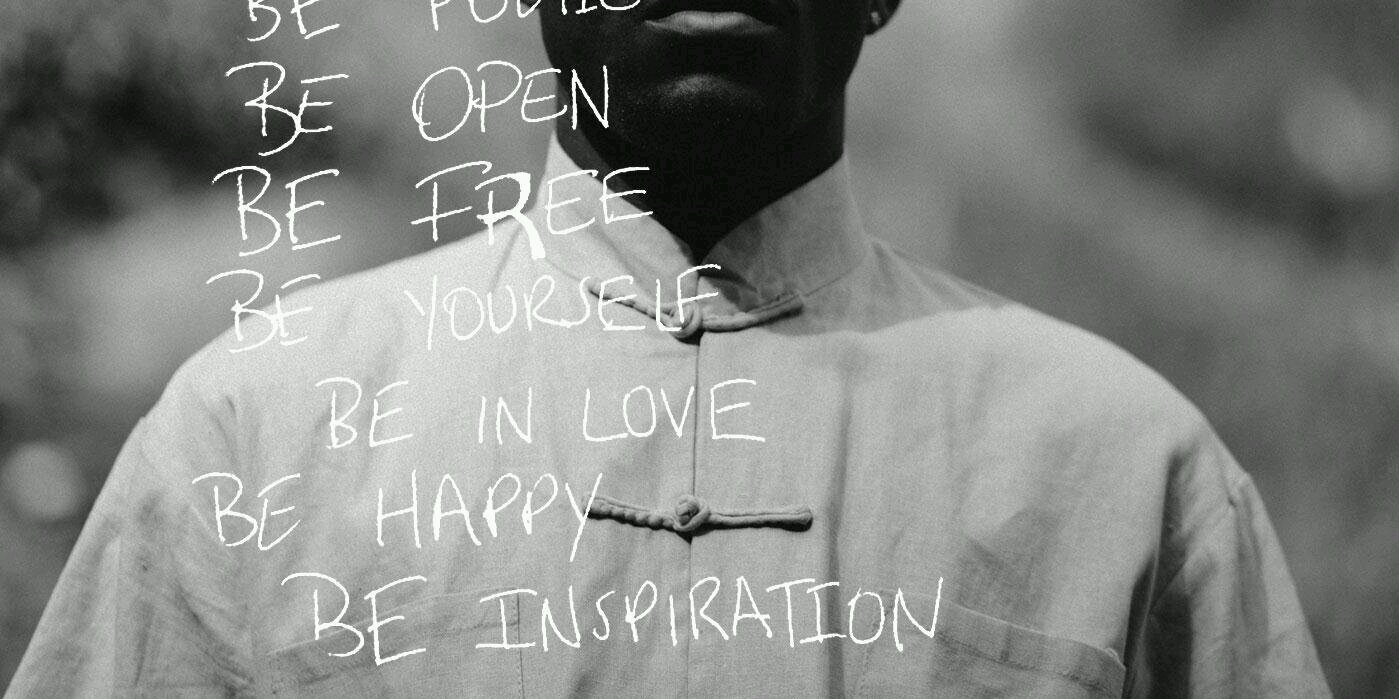 BE
BE OPEN
BE FREE
BE YOURSELF
BE IN LOVE
BE HAPPY
BE INSPIRATION